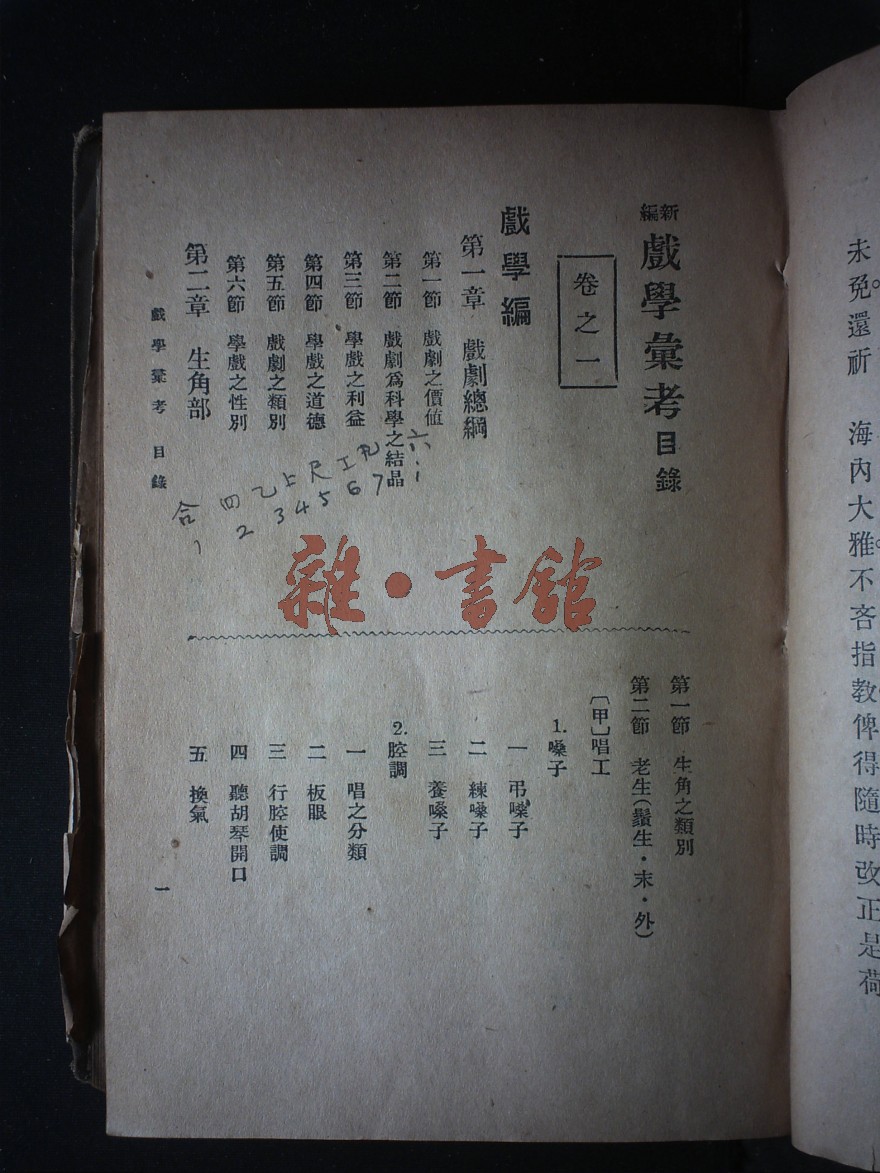 未免還祈　海內大雅不吝指教俾得隨時改正是荷
新編 戲學彙考目錄
卷之一
戲學編
第一章　戲劇總綱
第一節　戲劇之價值
第二節　戲劇爲科學之結晶
第三節　學戲之利益
第四節　學戲之道德
第五節　戲劇之類別
第六節　學戲之性別
第二章　生角部
合 四 乙 上 尺 工 凡 六
1 2 3 4 5 6 7 i
雜·書館
第一節　生角之類別
第二節　老生（鬚生·末·外）
〔甲〕唱工
1.嗓子
一　弔嗓子
二　練嗓子
三　養嗓子
2.腔調
一　唱之分類
二　板眼
三　行腔使調
四　聽胡琴開口
五　換氣
戲學彙考　目錄
一